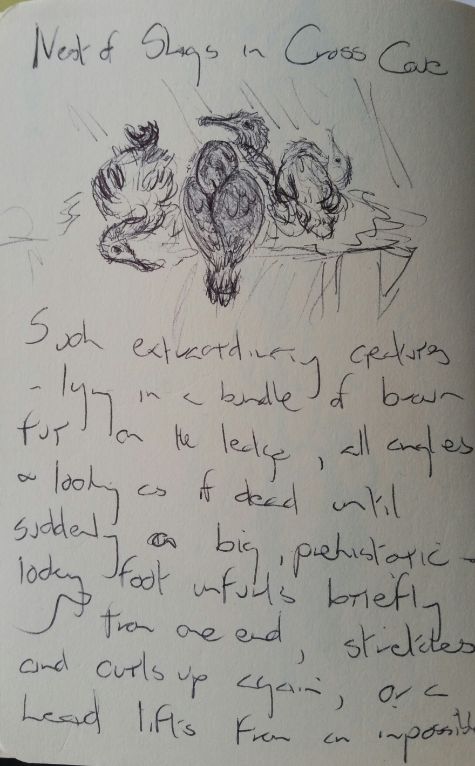 Nest of Shags in Cross Cave
Such extraordinary creatures
- lying in a bundle of brown
fur on the ledge, all angles
& looking as if dead until
suddenly a big, prehistoric-
looking foot unfurls briefly
from one end, stretches
and curls up again, or a
head lifts from an impossible